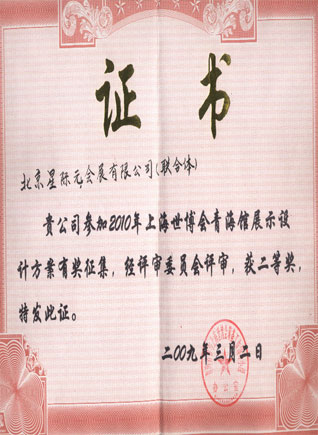 证书
北京星际元会展有限公司(联合体)
贵公司参加2010年上海世博会青海馆展示设
计方案有奖征集，经评审委员会评审，获二等奖，
特发此证。
二〇〇九年三月二日
办公室